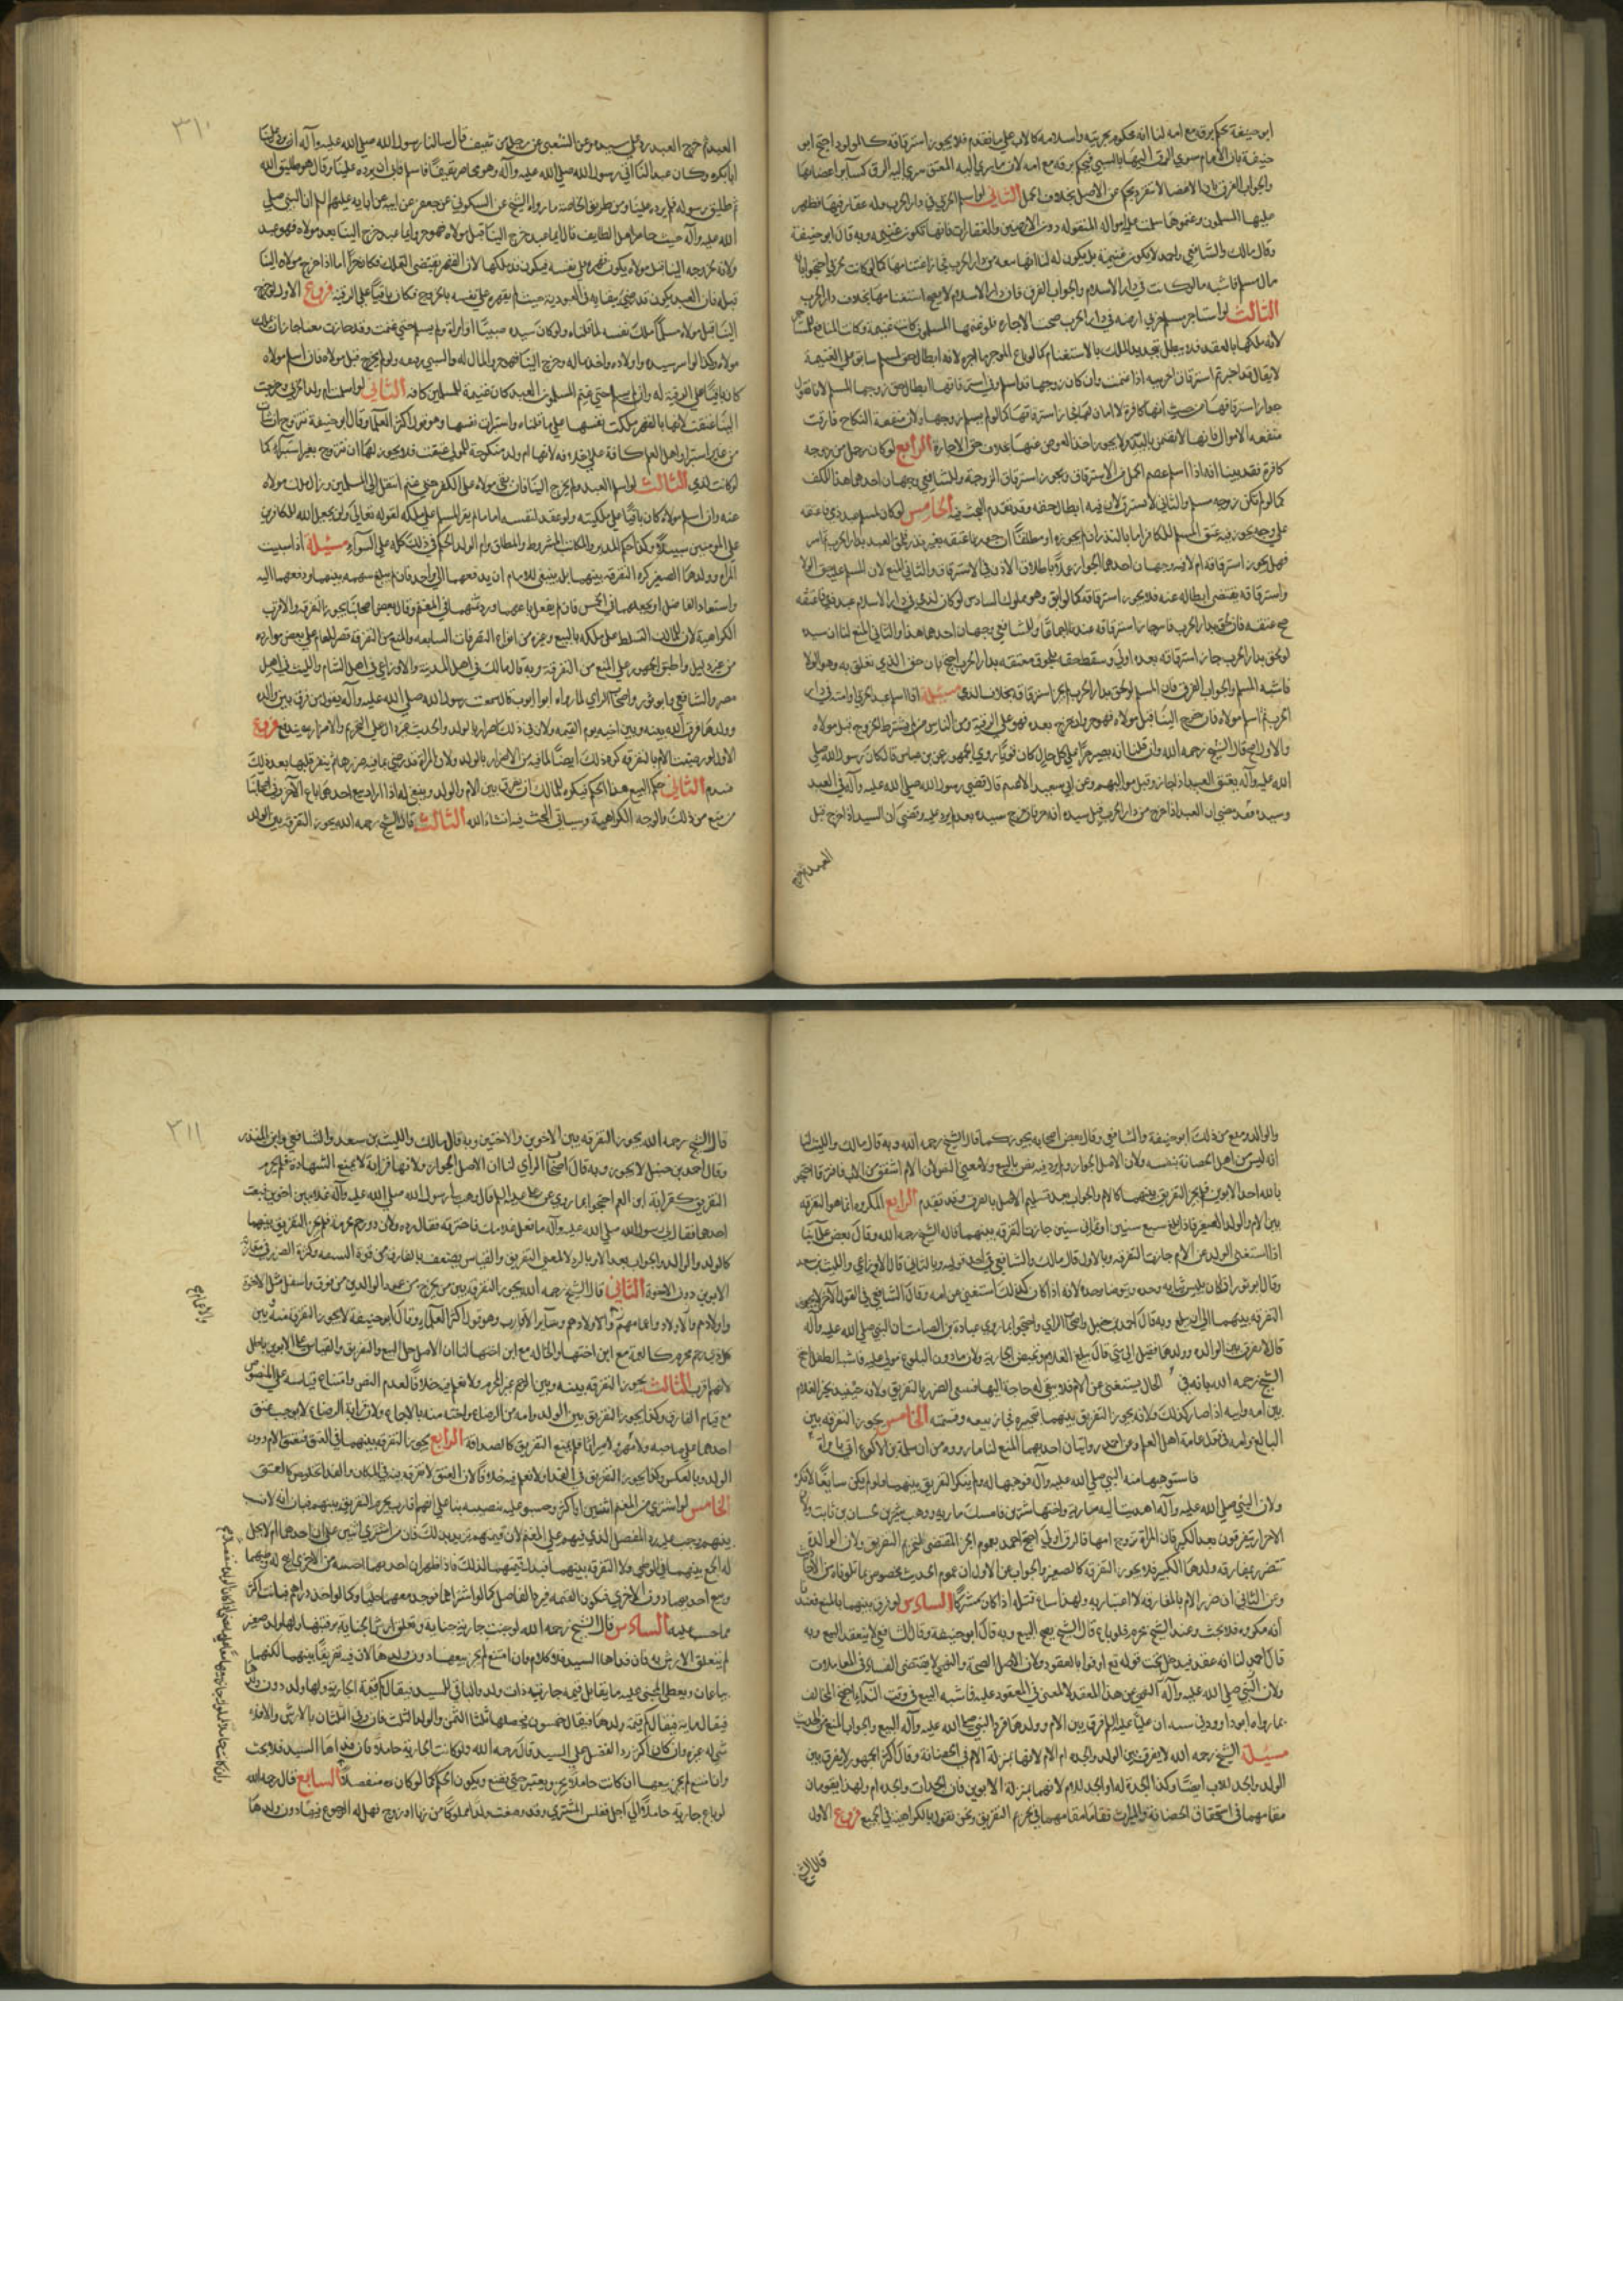 ابو حنيفة يحكم برقه مع امه لنا انه محكوم بحريته واسلامه كالاب على ما تقدم فلا يجوز استرقاقه كالمولود احتج ابو
حنيفة بان الام سري الرق اليها بالسبي فيحكم برقه مع امه لان ما سري اليه العتق سري اليه الرق كسائر اعضائها
والجواب الفرق بان الاعضاء لا تنفرد بحكم عن الاصل بخلاف الحمل الثاني لو اسلم الحربي في دار الحرب وله عقار فيها فظهر
عليها المسلمون وغنموها سلمت عليه امواله المنقوله دون الارضين والعقارات فانها تكون غنيمه وبه قال ابو حنيفة
وقال مالك والشافعي واحمد لا يكون غنيمة بل يكون له لنا انها بقعه من دار الحرب فجاز اغتنامها كما لو كانت لحربي احتجوا بانه
مال مسلم فاشبه ما لو كانت في دار الاسلام والجواب الفرق فان دار الاسلام لا يصح استغنامها بخلاف دار الحرب
الثالث لو استاجر مسلم من حربي ارضه في دار الحرب صحت الاجاره فلو غنمها المسلمون كانت غنيمة وكانت المنافع للمستاجر
لانه ملكها بالعقد فلا يبطل تجديد الملك بالاستغنام كما لو باع الموجر
لا يقال فقد اجزتم استرقاق الحربيه اذا سبيت وان كان زوجها قد اسلم وفي استرقاقها ابطال حق زوجها المسلم لانا نقول
يجوز استرقاقها من حيث انها كافرة لا امان لها فجاز استرقاقها كما لو لم يسلم زوجها ولان منفعة النكاح فارقت
منفعه الاموال فانها لا تضمن باليد ولا يجوز اخذ العوض عنها بخلاف حق الاجارة الرابع لو كان رجل من زوجه
كافرة فقد بينا انه اذا اسلم عصم الحمل من الاسترقاق ويجوز استرقاق الزوجة وللشافعي وجهان احدهما هذا
كما لو لم تكن زوجه مسلم والثاني لا تسترق لان فيه ابطال حقه وقد تقدم البحث فيه الخامس لو كان لمسلم عبد ذمي فاعتقه
على وجه يجوز فيه عتق المسلم للكافر اما بالنذر ان لم يجوزه او مطلقا
فهل يجوز استرقاقه ام لا فيه وجهان احدهما الجواز عملا باطلاق الاذن في الاسترقاق والثاني المنع لان للمسلم عليه حق الولا
واسترقاقه يقتضى ابطاله عنه فلا يجوز استرقاقه كالابق وهو مملوك السادس لو كان لذمي في دار الاسلام عبد ذمي فاعتقه
صح عتقه فان لحق بدار الحرب فاسر جاز استرقاقه عندنا اجماعا وللشافعي وجهان احدهما هذا والثاني المنع لنا ان سيده
لو لحق بدار الحرب جاز استرقاقه فعبده اولي وسقط حقه بلحوق معتقه بدار الحرب احتج بان حق الذمي تعلق به وهو الولا
فاشبه المسلم والجواب الفرق فان المسلم لو لحق بدار الحرب لم يجز استرقاقه بخلاف الذمي مسئلة اذا اسلم عبد الحربي او امته في دار
الحرب ثم اسلم مولاه فان خرج الينا قبل مولاه فهو حر وان خرج بعده فهو على الرقية ومن الناس من لم يشترط الخروج قبل مولاه
والاول اصح قال الشيخ رحمه الله وان قلنا انه يصير حرا على كل حال كان قويا روى الجمهور عن ابن عباس قال كان رسول الله صلى
الله عليه وآله يعتق العبيد اذا جاؤا قبل مواليهم وعن ابي سعيد الاعسم قال قضى رسول الله صلى الله عليه وآله في العبد
وسيده فقضى ان العبد اذا خرج من دار الحرب قبل سيده انه حر فان خرج سيده بعده لم يرد عليه وقضى ان السيد اذا خرج قبل
العبد ثم خرج
٣١٠
العبد ثم خرج العبد رد على سيده وعن الشعبي عن رجل من ثقيف قال سالنا رسول الله صلى الله عليه وآله ان يرد علينا
ابا بكره وكان عبدا لنا اتى رسول الله صلى الله عليه وآله وهو محاصر ثقيفا فاسلم فابى ان يرده علينا وقال هو طليق الله
ثم طليق رسوله فلم يرده علينا ومن طريق الخاصة ما رواه الشيخ عن السكوني عن جعفر عن ابيه عن آبايه عليهم السلم ان النبي صلى
الله عليه وآله حيث حاصر اهل الطايف قال ايما عبد خرج الينا قبل مولاه فهو حر وايما عبد خرج الينا بعد مولاه فهو عبد
ولانه بخروجه الينا قبل مولاه يكون قد قهر مولاه على نفسه فيكون قد ملكها لان القهر يقتضي التملك فكان حرا اما اذا خرج مولاه الينا
قبله فان العبد يكون قد رضي ببقايه في العبودية حيث لم يقهره على نفسه بالخروج فكان باقيا على الرقية فروع الاول لو خرج
الينا قبل مولاه مسلما ملك نفسه لما قلناه ولو كان سيده صبيا او امراة
مولاه وكذا لو اسر سيده واولاده واخذ ماله وخرج الينا فهو حر والمال له والسبي رقيقه ولو لم يخرج قبل مولاه فان اسلم مولاه
كان باقيا على الرقية له وان لم يسلم حتى غنم المسلمون العبد كان غنيمة للمسلمين كافة الثاني لو اسلمت ام ولد الحربي وخرجت
الينا عتقت لانها بالقهر ملكت نفسها على ما قلناه واستبرات نفسها وهو قول اكثر العلماء وقال ابو حنيفة تتزوج ان شاءت
من غير استبراء واهل العلم كافة على خلافه لانها ام ولد منكوحة للمولى عتقت فلا يجوز لها ان تتزوج بغير استبراء كما
لو كانت لذمي الثالث لو اسلم العبد ولم يخرج الينا فان بقي مولاه على الكفر حتى غنم انتقل الى المسلمين وزال ملك مولاه
عنه وان اسلم مولاه كان باقيا على ملكيته ولو عقد لنفسه امانا لم يقر المسلم على ملكه لقوله تعالى ولن يجعل الله للكافرين
على المؤمنين سبيلا وكذا حكم المدبر والمكاتب المشروط والمطلق وام الولد الحكم في ذلك كله على السوآء مسئلة اذا سبيت
المراة وولدها الصغير كره التفرقة بينهما بل ينبغي للامام ان يدفعهما الى واحد فان لم يبلغ سهمه قيمتهما دفعهما اليه
واستعاد الفاضل او يجعلهما في الخمس فان لم يفعل باعهما ورد ثمنهما في المغنم وقال بعض اصحابنا يجوز التفرقه والاقرب
الكراهية لان للمالك التسلط على ملكه بالبيع وغيره من انواع التصرفات السابعه والمنع من التفرقه قصر للعام على بعض موارده
من غير دليل واطبق الجمهور على المنع من التفرقة وبه قال مالك في اهل المدينة والاوزاعي في اهل الشام والليث في اهل
مصر والشافعي وابو ثور واصحاب الراي لما رواه ابو ايوب قال سمعت رسول الله صلى الله عليه وآله يقول من فرق بين والده
وولدها فرق الله بينه وبين احبته يوم القيمه ولان في ذلك اضرارا بالولد والحديث غير دال على التحريم والاضرار يندفع فروع
الاول لو رضيت الام بالتفرقه كره ذلك ايضا لما فيه من الاضرار بالولد ولان المراة قد ترضى بما فيه ضررها ثم يتغير قلبها بعد ذلك
فتندم الثاني حكم البيع هذا الحكم فيكره للمالك ان يفرق بين الام والولد وينبغي له اذا اراد بيع احدهما باع الآخر ومن اصحابنا
من منع من ذلك والوجه الكراهية وسياتي البحث فيه انشاء الله الثالث قال الشيخ رحمه الله يجوز التفرقه بين الولد
والوالد ومنع من ذلك ابو حنيفة والشافعي وقال بعض اصحابه يجوز كما قال الشيخ رحمه الله وبه قال مالك والليث لنا
انه ليس من اهل الحضانة بنفسه ولان الاصل الجواز ولم يرد فيه نص بالمنع ولا معنى النص لان الام اشفق من الاب فافترقا احتجوا
بانه احد الابوين فلم يجز التفريق بينهما كالام والجواب بعد تسليم الاصل بالفرق وقد تقدم الرابع المكروه انما هو التفرقه
بين الام والولد الصغير فاذا بلغ سبع سنين او ثمانى سنين جازت التفرقه بينهما قاله الشيخ رحمه الله وقال بعض علمائنا
اذا استغنى الولد عن الام جازت التفرقه وبالاول قال مالك والشافعي في احد قوليه وبالثاني قال الاوزاعي والليث بن سعد
وقال ابو ثور اذا كان يلبس ثيابه وحده ويتوضا وحده لانه اذا كان كذلك استغنى عن امه وقال الشافعي في القول الآخر لا يجوز
التفرقه بينهما الى ان يبلغ وبه قال احمد بن حنبل واصحاب الراي واحتجوا بما روي عبادة بن الصامت ان النبي صلى الله عليه وآله
قال لا يفرق بين الوالده وولدها فقيل الى متى قال حتى يبلغ الغلام وتحيض الجارية ولان ما دون البلوغ مولى عليه فاشبه الطفل احتج
الشيخ رحمه الله بانه في الحال يستغنى عن الام فلا يبقى له حاجة اليها فتنتفى الضرر بالتفريق ولانه حينئذ يخير الغلام
بين امه وابيه اذا صار كذلك ولانه يجوز التفريق بينهما بتخييره فجاز ببيعه وقسمته الخامس يجوز التفرقه بين
البالغ وامه في قول عامة اهل العلم وعن احمد روايتان احديهما المنع لنا ما رووه من ان سلمة بن الاكوع اتى بامراة
فاستوهبها منه النبي صلى الله عليه وآله فوهبها له ولم ينكر التفريق بينهما ولو لم يكن سايغا لانكره
ولان النبي صلى الله عليه وآله اهديت اليه مارية واختها شيرين فامسك مارية ووهب شيرين لحسان بن ثابت ولان
الاحرار يتفرقون بعد الكبر فان المراة تزوج ابنتها فالرق اولى احتج احمد بعموم الخبر المقتضي لتحريم التفريق ولان الوالدة
تتضرر بمفارقه ولدها الكبير فلا يجوز التفرقه كالصغير والجواب عن الاول ان عموم الحديث مخصوص بما تلوناه من الاخبار
وعن الثاني ان ضرر الام بالمفارقه لا اعتبار به ولهذا ساغ قتله اذا كان مشركا السادس لو فرق بينهما بالبيع فعندنا
انه مكروه فلا بحث وعند الشيخ محرم فلو باع قال الشيخ يصح البيع وبه قال ابو حنيفة وقال الشافعي لا ينعقد البيع وبه
قال احمد لنا انه عقد فيدخل تحت قوله تع اوفوا بالعقود ولان الاصل الصحة والنهي لا يقتضى الفساد في المعاملات
ولان النبي صلى الله عليه وآله النهي عن هذا العقد لا لمعنى في المعقود عليه فاشبه البيع في وقت النداء احتج المخالف
بما رواه ابو داوود في سننه ان عليا عليه السلم فرق بين الام وولدها فرد النبي صلى الله عليه وآله البيع والجواب المنع من الحديث
مسئلة الشيخ رحمه الله لا يفرق بين الولد والجدة ام الام لانها بمنزلة الام في الحضانة وقال اكثر الجمهور لا يفرق بين
الولد والجد للاب ايضا وكذا الجدة له او الجد للام لانهما بمنزلة الابوين فان الجدات والجدة ام ولهذا يقومان
مقامهما في استحقاق الحضانة والميراث فقاما مقامهما في تحريم التفريق ونحن نقول بالكراهية في الجميع فروع الاول
قال الشيخ
٣١١
قال الشيخ رحمه الله يجوز التفرقه بين الاخوين والاختين وبه قال مالك والليث بن سعد والشافعي وابن المنذر
وقال احمد بن حنبل لا يجوز وبه قال اصحاب الراي لنا ان الاصل الجواز ولانها قرابة لا يمنع الشهادة فلم يحرم
التفريق كقرابة ابن العم احتجوا بما روي عن علي عليه السلم قال وهب لي رسول الله صلى الله عليه وآله غلامين اخوين فبعت
احدهما فقال لي رسول الله صلى الله عليه وآله ما فعل غلامك فاخبرته فقال رده ولان ذو رحم محرم فلم يجز التفريق بينهما
كالولد والوالد والجواب بعد
الابوين دون الاخوة الثاني قال الشيخ رحمه الله يجوز التفرقه بين من يخرج من عمود الوالدين من فوق واسفل مثل الاخوة
واولادهم والاولاد واعمامهم والاولادهم وسائر الاقارب وهو قول اكثر العلماء وقال ابو حنيفة لا يجوز التفرقه بينه وبين
كل ذي رحم محرم كالعمة مع ابن اخيها والخاله مع ابن اختها لنا ان الاصل حل البيع والتفريق والقياس على الابوين باطل
لانهم اقرب الثالث يجوز التفرقه بينه وبين الرحم غير المحرم ولا نعلم فيه خلافا لعدم النص وامتناع قياسه على المنصوص
مع قيام الفارق وكذا يجوز التفريق بين الولد وامه من الرضاع واخته منه بالاجماع ولان قرابة الرضاع لا يوجب عتق
احدهما على صاحبه ولا نفقه ولا ميراثا فلم يمنع التفريق كالصداقة الرابع يجوز التفرقه بينهما في العتق فيعتق الام دون
الولد وبالعكس وكذا يجوز التفريق في الفداء ولا نعلم فيه خلافا لان العتق لا تفرقه فيه في المكان والفداء تخليص كالعتق
الخامس لو اشترى من المغنم اثنين او اكثر وحسبوا عليه بنصيبه بناء على انهم اقارب يحرم التفريق بينهم فبان انه لا نسب
بينهم وجب عليه رد الفضل الذي فيهم على المغنم لان قيمتهم تزيد بذلك فان من اشترى اثنين على ان احدهما ام الاخرى لا يحل
له الجمع بينهما في الوطى ولا التفرقه بينهما فيقل قيمتهما لذلك فاذا ظهر ان احديهما اجنبيه من الاخرى ابيح له وطيهما
وبيع احديهما دون الاخرى فتكون القيمه فيرد الفاضل كما لو اشتراهما فوجد معهما حليا وكما لو اخذ دراهم فبانت اكثر
مما حسب عليه السادس قال الشيخ رحمه الله لو جنت جارية جناية وتعلق ارش الجناية برقبتها ولها ولد صغير
لم يتعلق الارش به فان فداها السيد فلا كلام وان امتنع لم يجز بيعها دون ولدها لان فيه تفريقا بينهما لكنهما
يباعان ويعطى المجنى عليه ما يقابل قيمة جاريته ذات ولد والباقي للسيد فيقال كم قيمة الجارية ولها ولد دون ولدها
فيقال مايه فيقال كم قيمة ولدها فيقال خمسون فحصتها ثلثا الثمن والولد الثلث فان وفى الثلثان بالارش والا فلا
شي له غيره وان كان اكثر رد الفضل على السيد قال رحمه الله ولو كانت الجارية حاملا فان فداها السيد فلا بحث
وان امتنع لم يجز بيعها ان كانت حاملا بحر ويصبر حتى تضع ويكون الحكم كما لو كان ولدا منفصلا السابع قال رحمه الله
لو باع جارية حاملا الى اجل ففلس المشتري وقد وضعت ولدا مملوكا من زنا او زوج فهل له الرجوع فيها دون ولدها
والاعمام